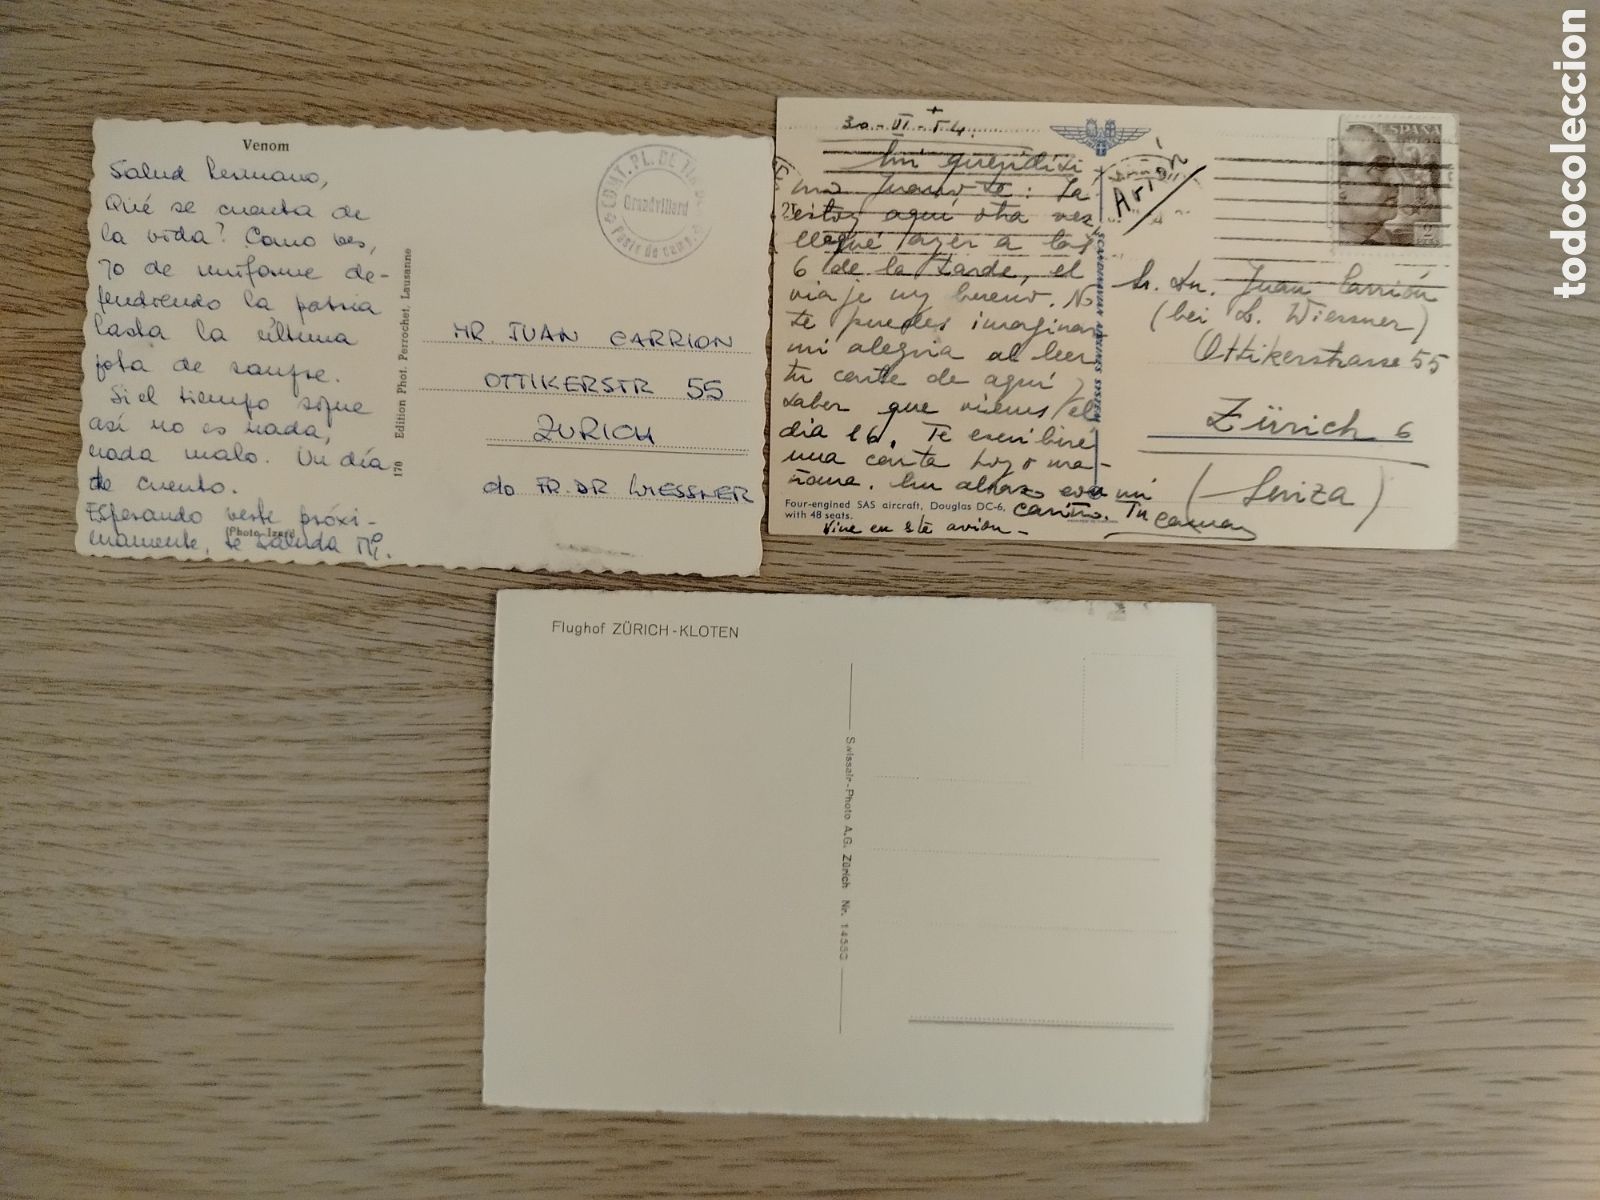 todocoleccion
Venom
Salud Hermano,
Qué se cuenta de
la vida? Como ves,
yo de uniforme de-
fendiendo la patria
hasta la última
gota de sangre.
Si el tiempo sigue
así no es nada,
nada malo. Un día
te cuento.
Esperando verte próxi-
mamente, te saluda
(Photo Izard)
170 Edition Phot. Perrochet, Lausanne
Grandvillard
Poste de camp.
MR. JUAN CARRION
OTTIKERSTR 55
ZURICH
c/o FR. DR WIESSNER
30-VI-54.
Mi queridísi
mo Juanito: Ya
estoy aquí otra vez
llegué ayer a las
6 de la tarde, el
viaje muy bueno. No
te puedes imaginar
mi alegría al leer
tu carta de aquí y
saber que vienes el
día 16. Te escribiré
una carta hoy o ma-
ñana. Un abrazo con mi
cariño. Tu
Vine en este avión -
Four-engined SAS aircraft, Douglas DC-6,
with 48 seats.
SCANDINAVIAN AIRLINES SYSTEM
Avión
ESPAÑA
2
Sr. Dn. Juan Carrión
(bei D. Wiessner)
Ottikerstrasse 55
Zürich 6
(Suiza)
Flughof ZÜRICH-KLOTEN
Swissair-Photo A.G. Zürich Nr.